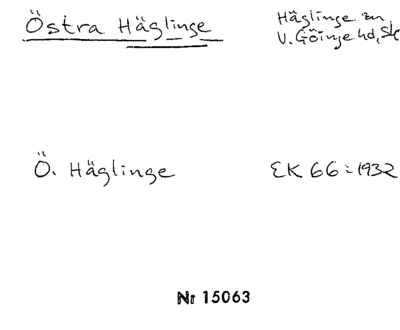 Östra Häglinge
Häglinge sn
V. Göinge hd, Sk
Ö. Häglinge
EK 66:1932
Nr 15063